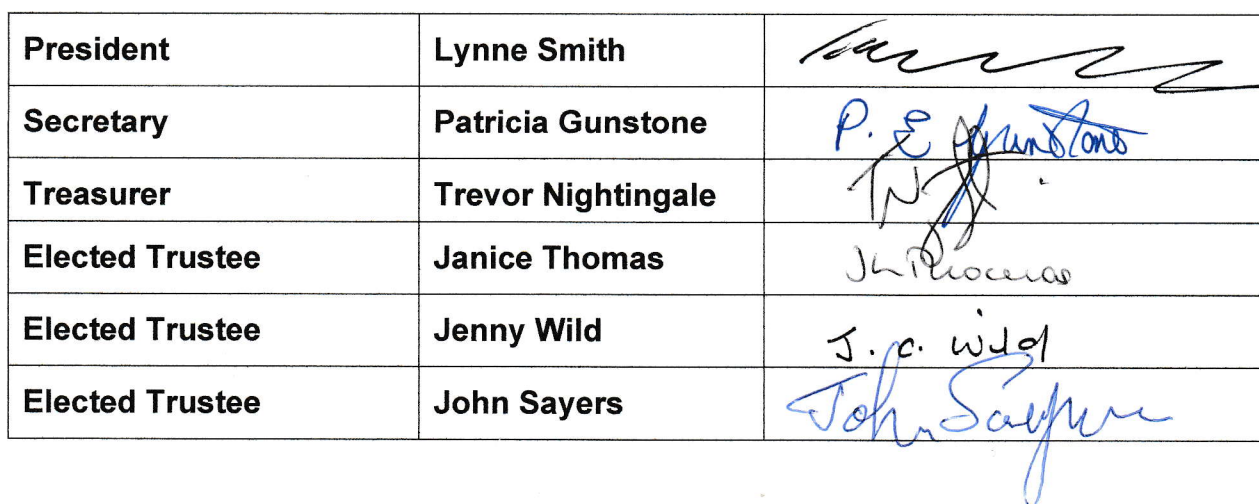 President Lynne Smith
Secretary Patricia Gunstone P. E Gunstone
Treasurer Trevor Nightingale
Elected Trustee Janice Thomas JL Thomas
Elected Trustee Jenny Wild J. C. Wild
Elected Trustee John Sayers John Sayers